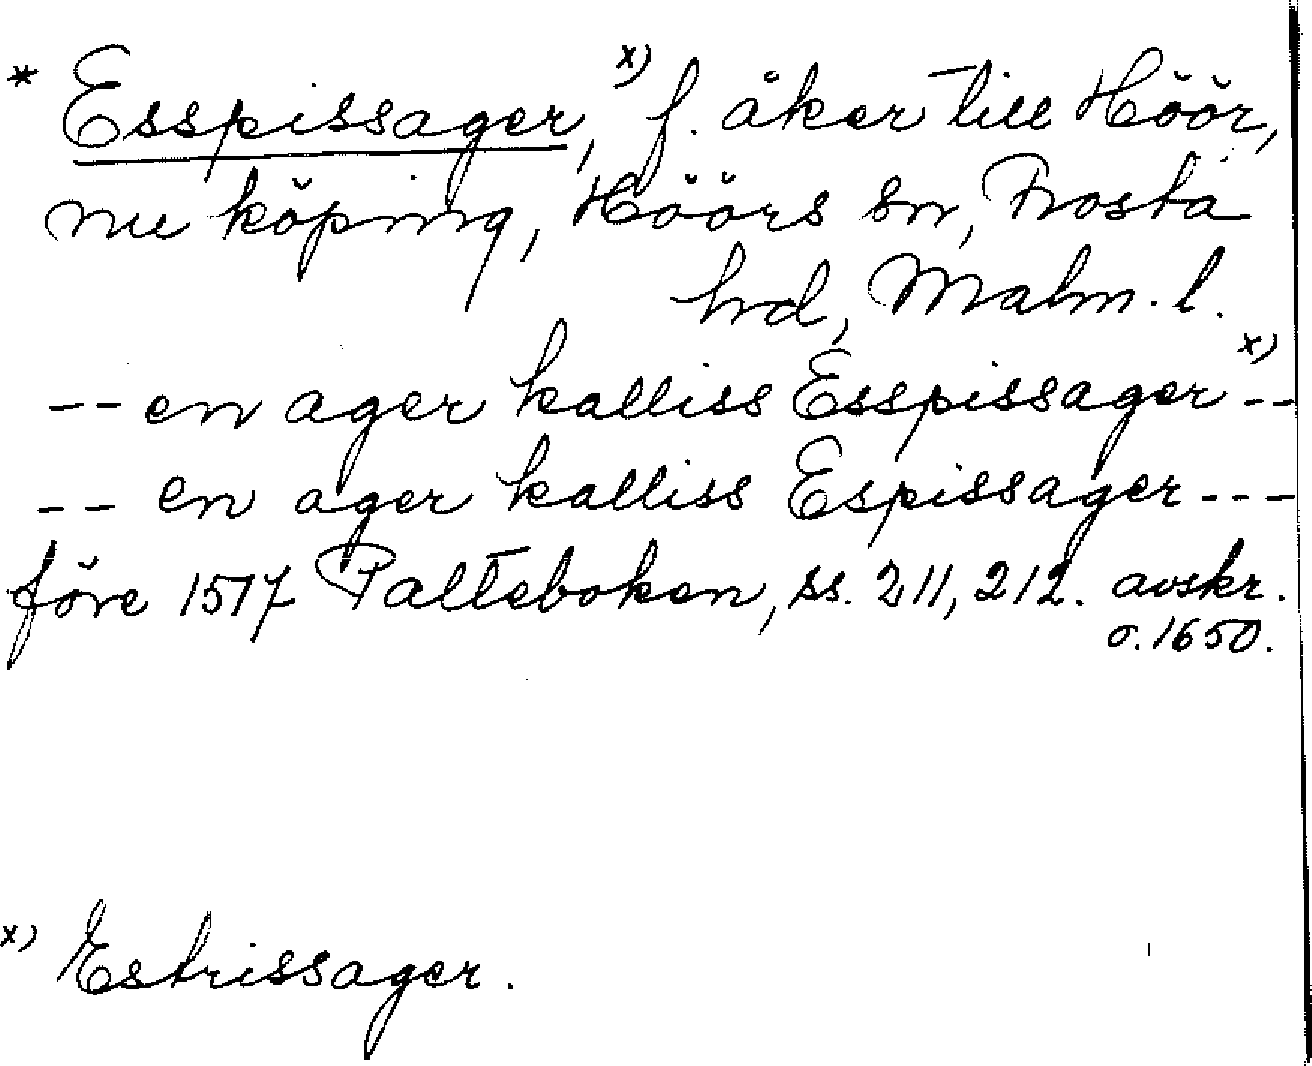 * Esspissager, x) f. åker till Höör,
nu köping, Höörs sn, Frosta
hrd, Malm. l.
-- en ager kalliss Esspissager x) --
-- en ager kalliss Espissager ---
före 1517 Palteboken, ss. 211, 212. avskr.
o. 1650.
x) Estrissager.